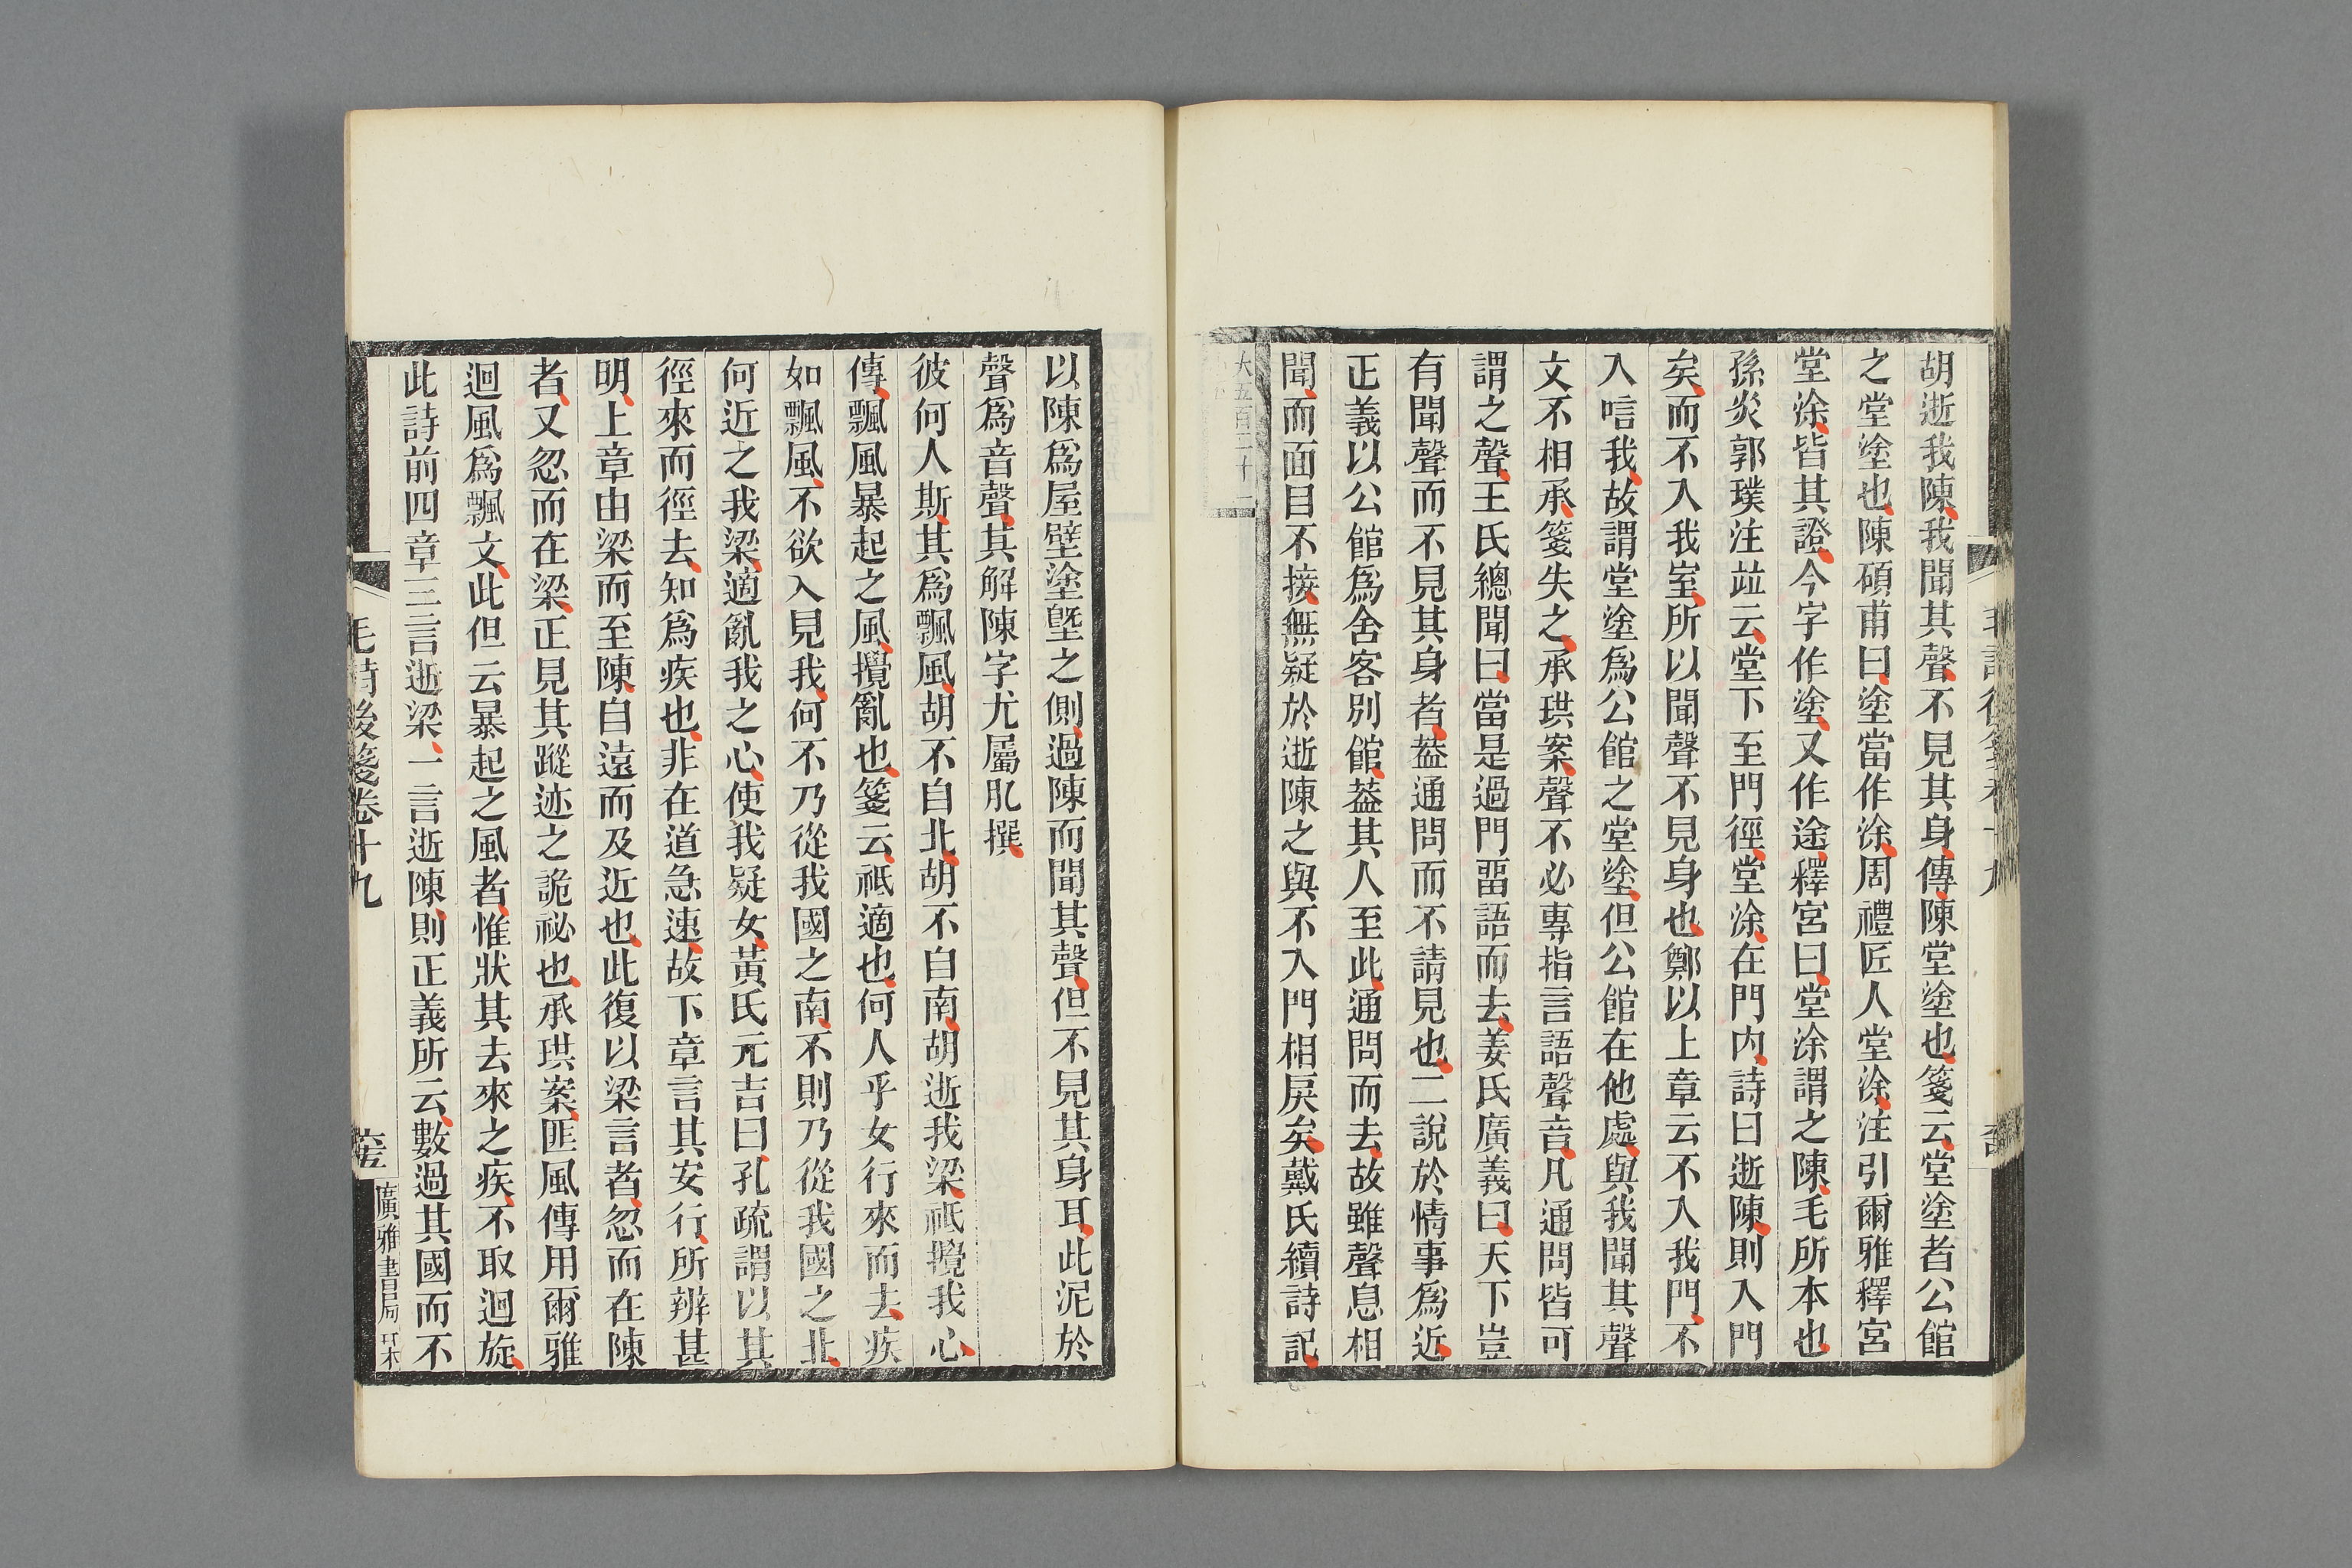 胡逝我陳我聞其聲不見其身傳陳堂塗也箋云堂塗者公館
之堂塗也陳碩甫曰塗當作涂周禮匠人堂涂注引爾雅釋宮
堂涂皆其證今字作塗又作途釋宮曰堂涂謂之陳毛所本也
孫炎郭璞注竝云堂下至門徑堂涂在門內詩曰逝陳則入門
矣而不入我室所以聞聲不見身也鄭以上章云不入我門不
入唁我故謂堂塗爲公館之堂塗但公館在他處與我聞其聲
文不相承箋失之承珙案聲不必專指言語聲音凡通問皆可
謂之聲王氏總聞曰當是過門畱語而去姜氏廣義曰天下豈
有聞聲而不見其身者葢通問而不請見也二說於情事爲近
正義以公館爲舍客別館葢其人至此通問而去故雖聲息相
聞而面目不接無疑於逝陳之與不入門相戾矣戴氏續詩記
大五百二十二
以陳爲屋壁塗塈之側過陳而聞其聲但不見其身耳此泥於
聲爲音聲其解陳字尤屬肊撰
彼何人斯其爲飄風胡不自北胡不自南胡逝我梁祇攪我心
傳飄風暴起之風攪亂也箋云祇適也何人乎女行來而去疾
如飄風不欲入見我何不乃從我國之南不則乃從我國之北
何近之我梁適亂我之心使我疑女黃氏元吉曰孔疏謂以其
徑來而徑去知爲疾也非在道急速故下章言其安行所辨甚
明上章由梁而至陳自遠而及近也此復以梁言者忽而在陳
者又忽而在梁正見其蹤迹之詭祕也承珙案匪風傳用爾雅
迴風爲飄文此但云暴起之風者惟狀其去來之疾不取迴旋
此詩前四章三言逝梁一言逝陳則正義所云數過其國而不
毛詩後箋卷十九
廣雅書局栞